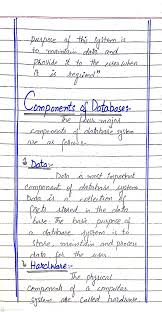 purpose of this system is
to maintain data and
provide it to the user when
it is required"
Components of Database:-
The four major
components of database system
are as follows.
1 Data:-
Data is most important
component of database system.
Data is a collection of
facts stored in the data
base. The basic purpose of
a database system is to
store, maintain and process
data for the user.
Hardware:-
The physical
components of a computer
system are called hardware.